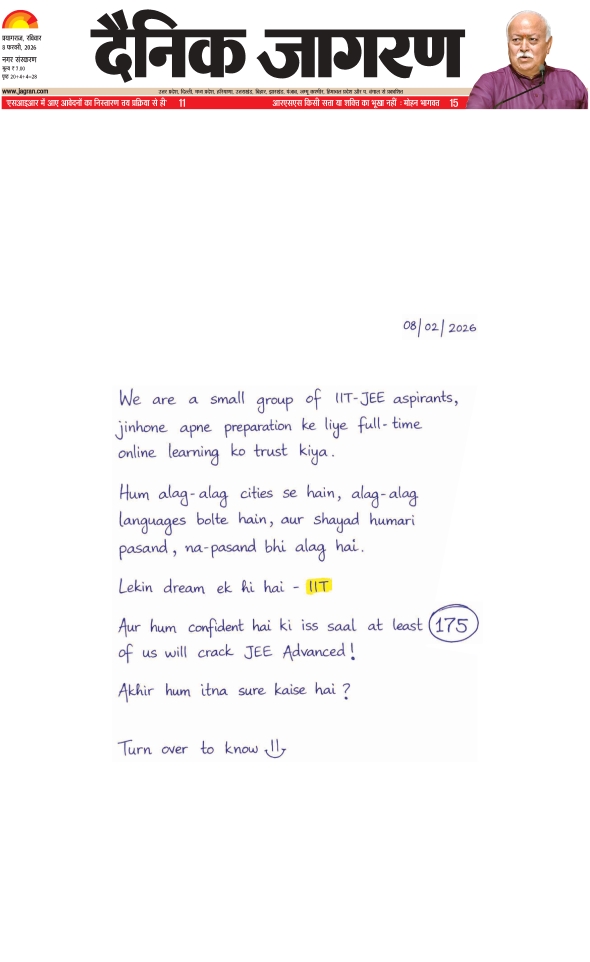 प्रयागराज, रविवार
8 फरवरी, 2026
नगर संस्करण
मूल्य ₹ 7.00
पृष्ठ 20+4+4=28
दैनिक जागरण
www.jagran.com
उत्तर प्रदेश, दिल्ली, मध्य प्रदेश, हरियाणा, उत्तराखंड, बिहार, झारखंड, पंजाब, जम्मू कश्मीर, हिमाचल प्रदेश और प. बंगाल से प्रकाशित
एसआइआर में आए आवेदनों का निस्तारण तय प्रक्रिया से ही 11
आरएसएस किसी सत्ता या शक्ति का भूखा नहीं : मोहन भागवत 15
08/02/2026
We are a small group of IIT-JEE aspirants,
jinhone apne preparation ke liye full-time
online learning ko trust kiya.
Hum alag-alag cities se hain, alag-alag
languages bolte hain, aur shayad humari
pasand, na-pasand bhi alag hai.
Lekin dream ek hi hai - IIT
Aur hum confident hai ki iss saal at least 175
of us will crack JEE Advanced!
Akhir hum itna sure kaise hai?
Turn over to know